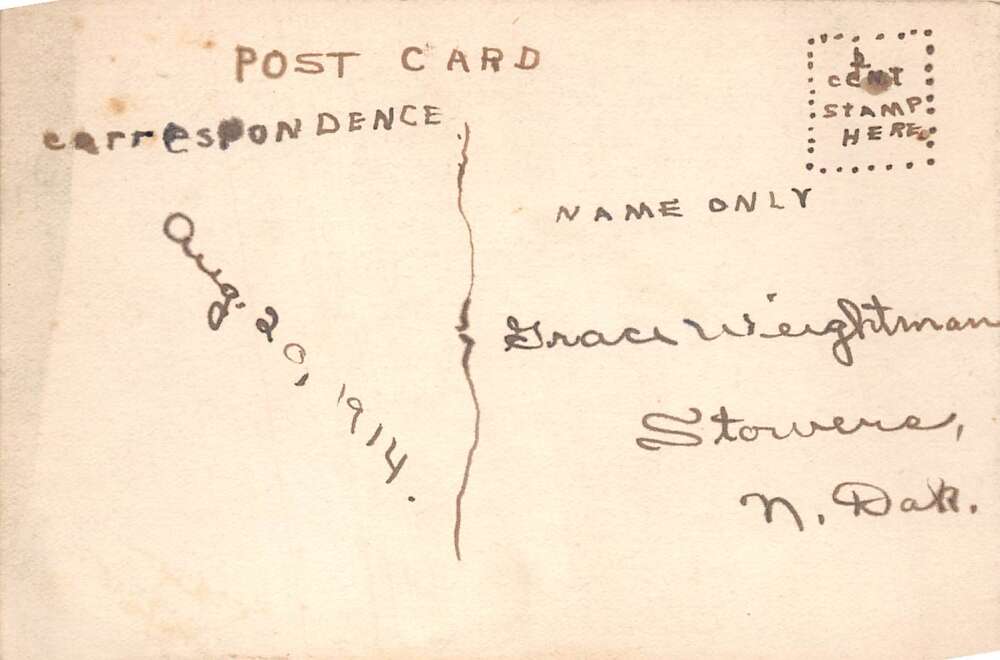 POST CARD
1
CENT
STAMP
HERE
correspONDENCE
NAME ONLY
Aug. 20, 1914.
Grace Weightman
Stowers,
N. Dak.